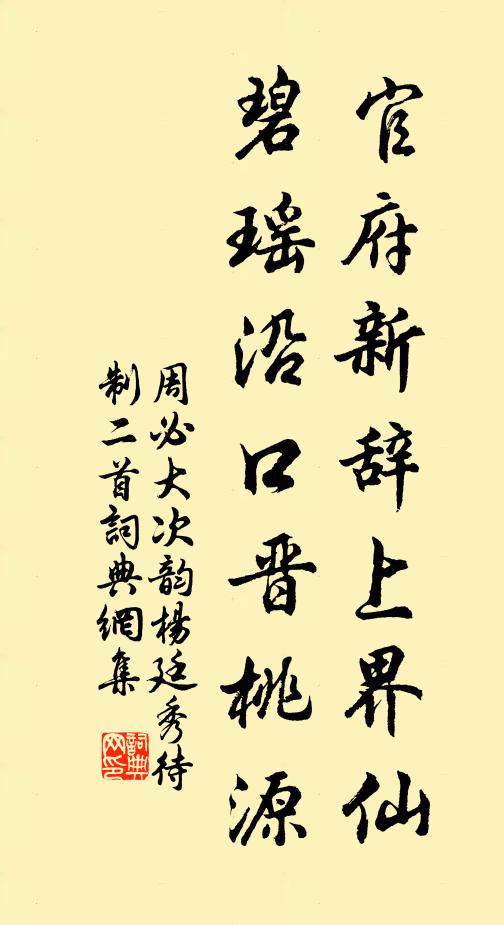 官府新辞上界仙
碧瑶沿口晋桃源
周必大次韵楊廷秀待
制二首詞典網集
詞典
网印